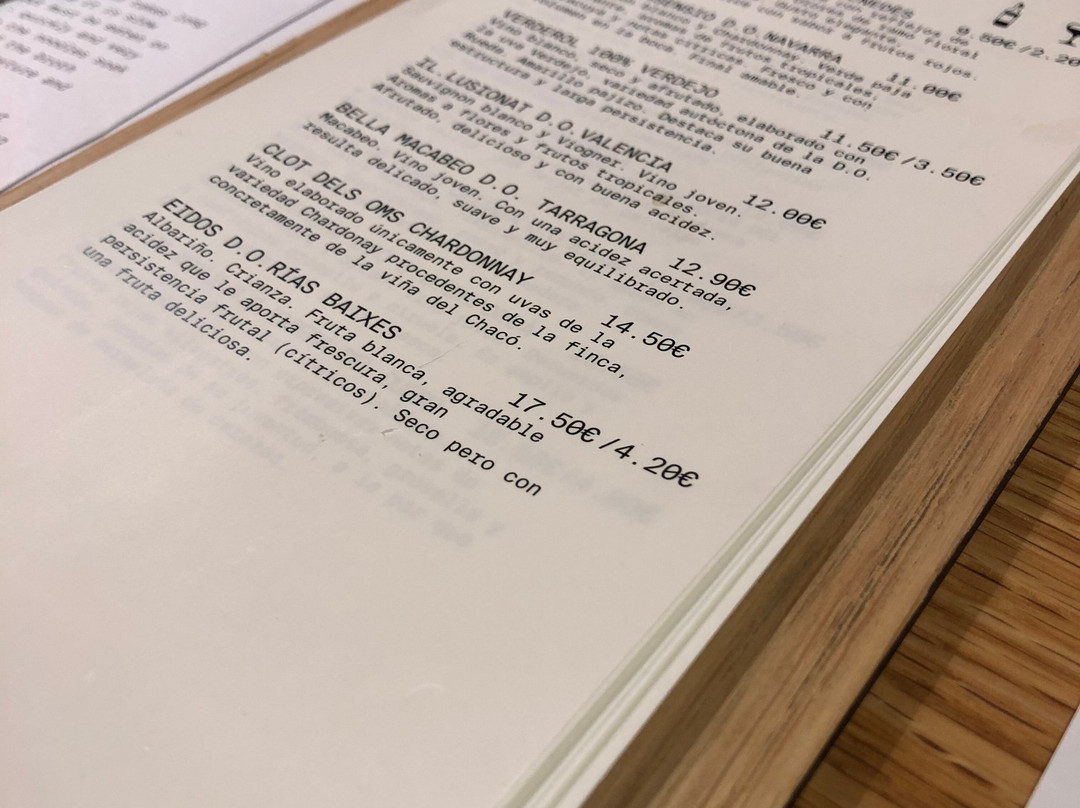 9.50€/2.20
frutos rojos.
D.O NAVARRA 11.00€
Chardonnay.
tropicales. Fresco y con
amable.
VERDEROL 100% VERDEJO 11.50€/3.50€
Vino blanco, seco y afrutado, elaborado con
la uva Verdejo, variedad autóctona de la D.O.
Rueda. Amarillo pajizo. Destaca su buena
estructura y larga persistencia.
IL.LUSIONAT D.O.VALENCIA 12.00€
Sauvignon blanco y Viogner. Vino joven.
Aromas a flores y frutos tropicales.
Afrutado, delicioso y con buena acidez.
BELLA MACABEO D.O. TARRAGONA 12.90€
Macabeo. Vino joven. Con una acidez acertada,
resulta delicado, suave y muy equilibrado.
CLOT DELS OMS CHARDONNAY 14.50€
Vino elaborado únicamente con uvas de la
variedad Chardonay procedentes de la finca,
concretamente de la viña del Chacó.
EIDOS D.O RÍAS BAIXES 17.50€/4.20€
Albariño. Crianza. Fruta blanca, agradable
acidez que le aporta frescura, gran
persistencia frutal (cítricos). Seco pero con
una fruta deliciosa.